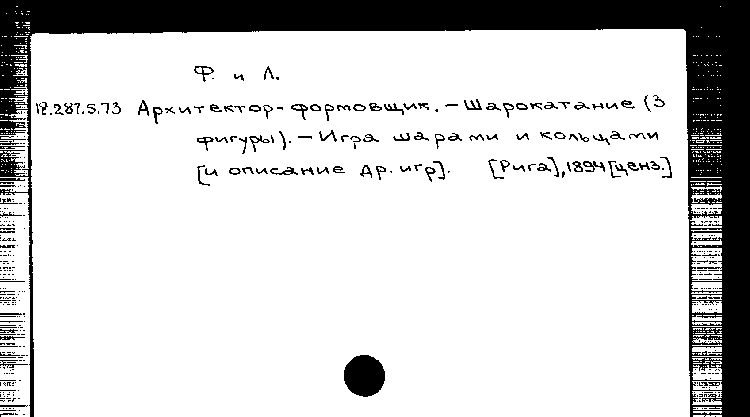 Ф. и Л.
18.287.5.73 Архитектор-формовщик. – Шарокатание (3
фигуры). – Игра шарами и кольцами
[и описание др. игр]. [Рига], 1894 [ценз.]